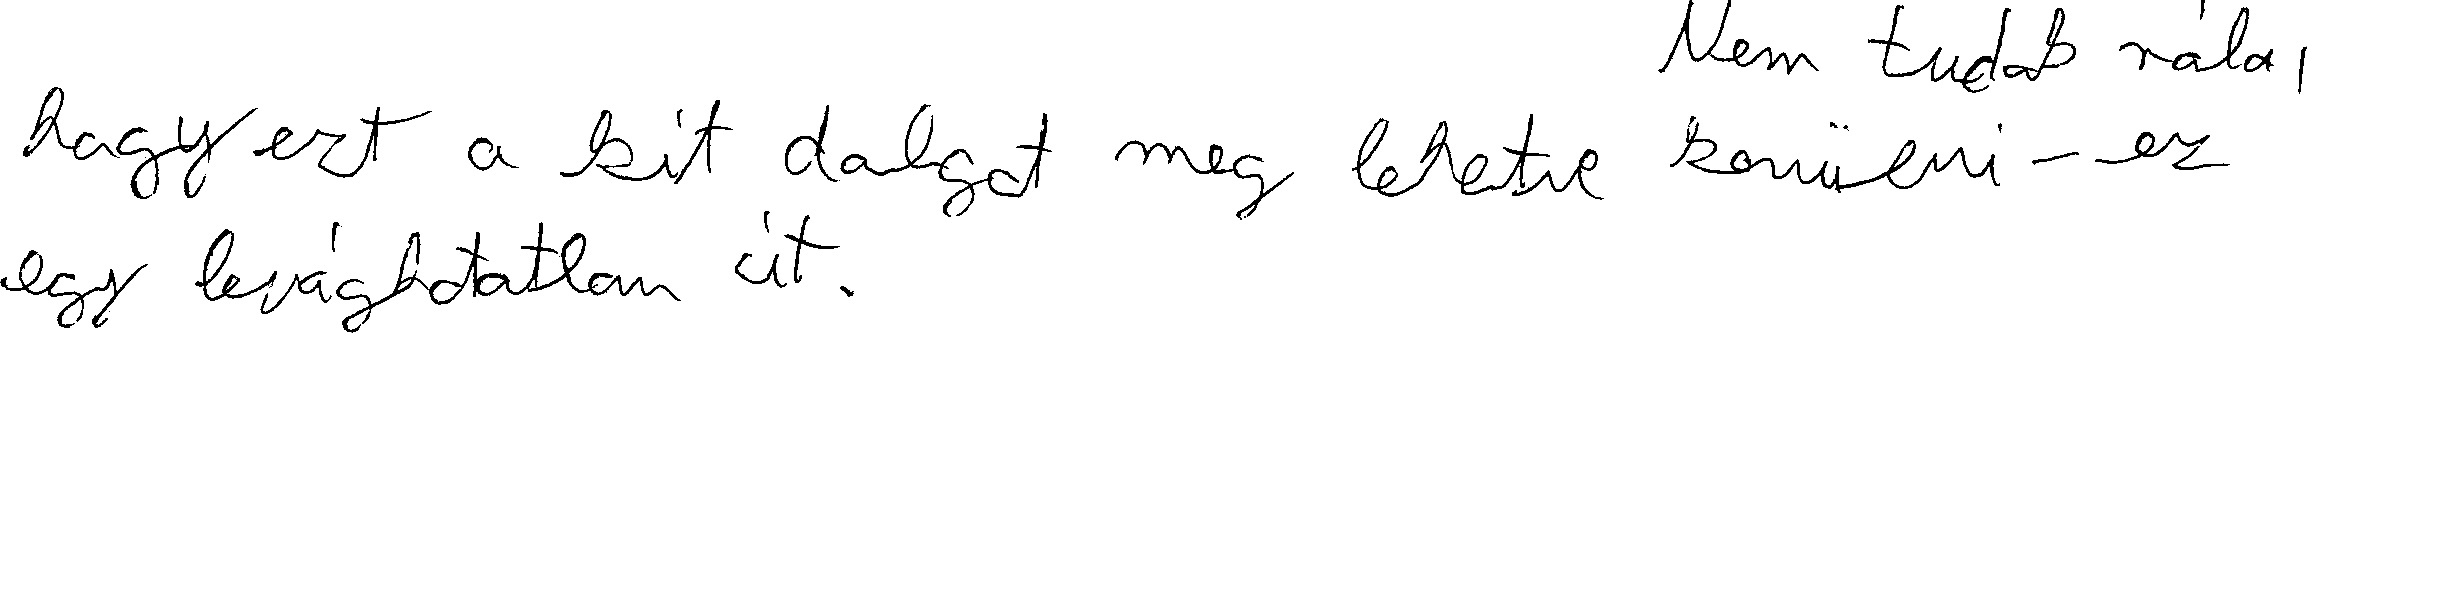 Nem tudok róla,
hogy ezt a két dolgot meg lehetne kerülni – ez
egy levághatatlan út.